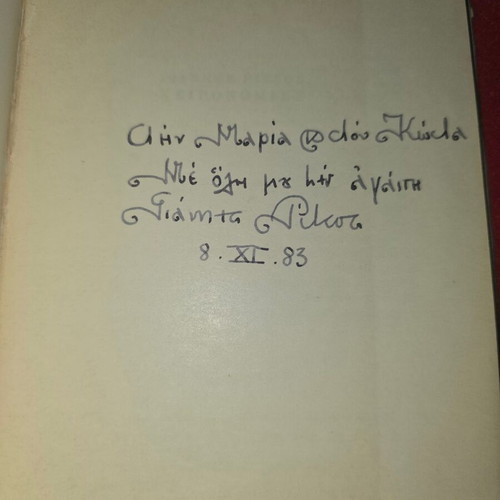 Στὴν Μαρία καὶ στὸν Κώστα
Μὲ ὅλη μου τὴν ἀγάπη
Γιάννης Ρίτσος
8.XI.83